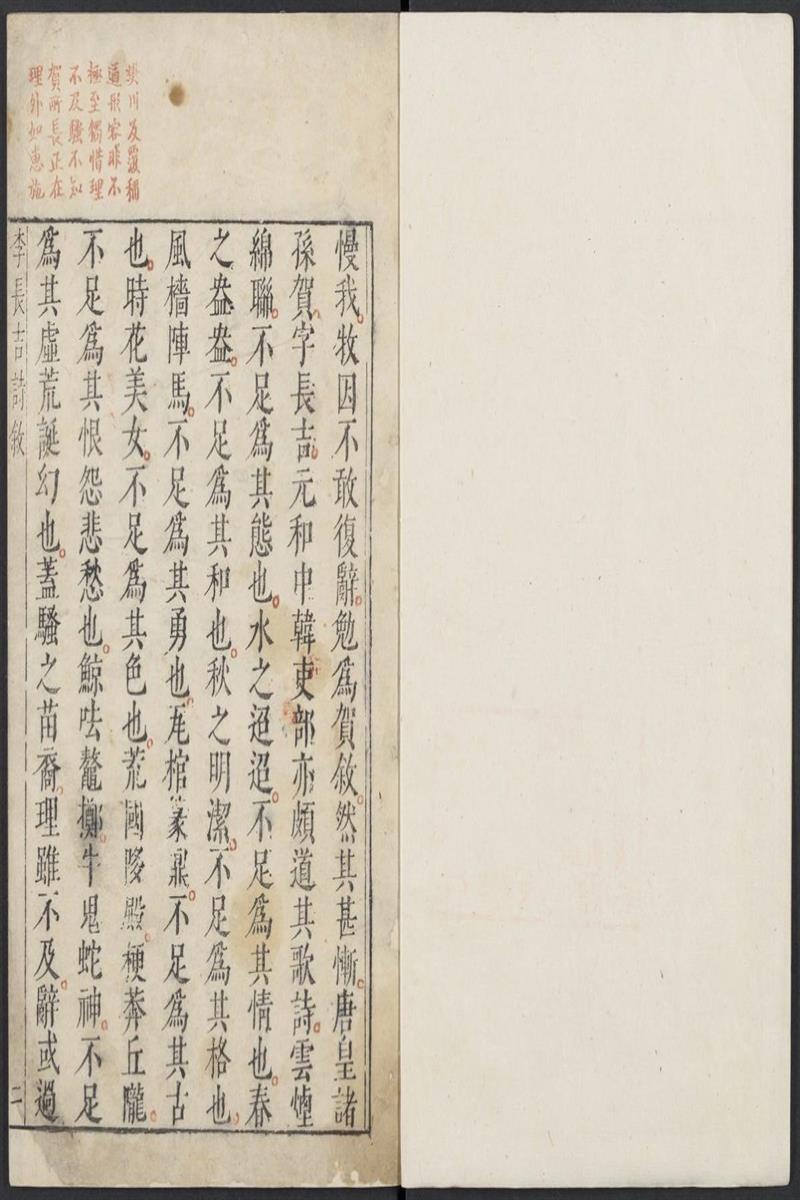 樊川反覆稱
道形容非不
極至獨惜理
不及騷不知
賀所長正在
理外如惠施
慢我牧因不敢復辭勉爲賀敘然其甚慚唐皇諸
孫賀字長吉元和中韓吏部亦頗道其歌詩雲煙
綿聯不足爲其態也水之迢迢不足爲其情也春
之盎盎不足爲其和也秋之明潔不足爲其格也
風檣陣馬不足爲其勇也瓦棺篆鼎不足爲其古
也時花美女不足爲其色也荒國陊殿梗莽丘隴
不足爲其恨怨悲愁也鯨呿鼇擲牛鬼蛇神不足
爲其虛荒誕幻也蓋騷之苗裔理雖不及辭或過
李長吉詩敘 二